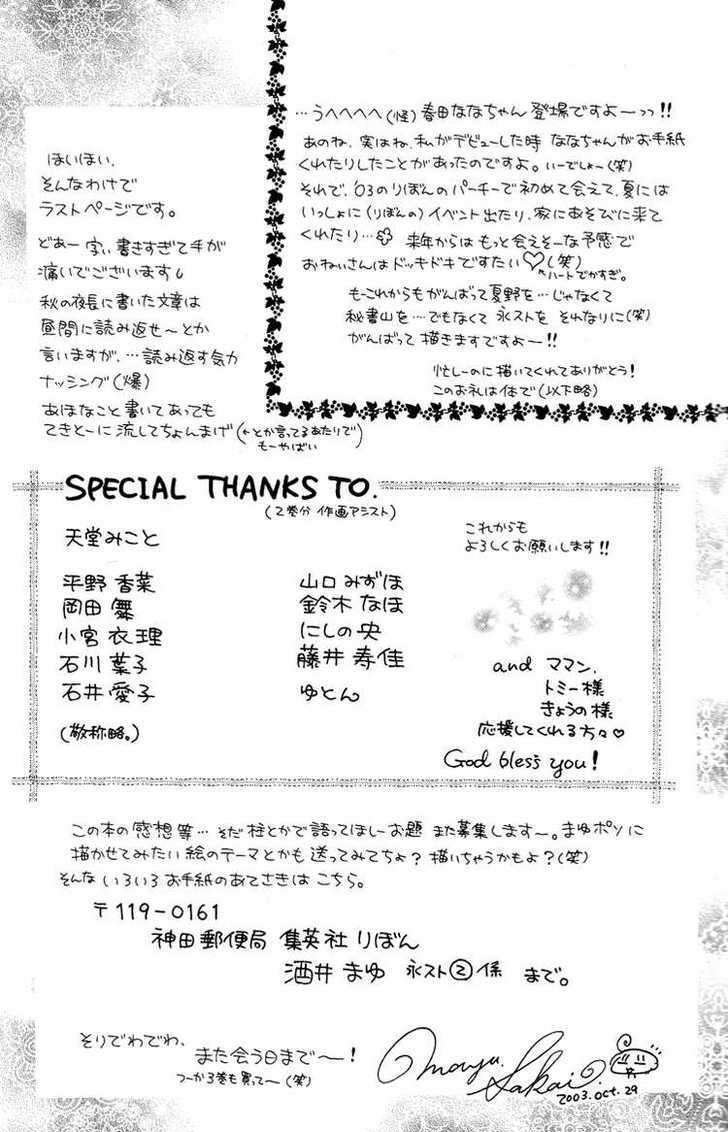 …うへへへへ(怪)春田ななちゃん 登場ですよーっっ!!
あのね、実はね、私がデビューした時 ななちゃんがお手紙
くれたりしたことがあったのですよ。いーでしょー(笑)
それで、'03のりぼんのパーチーで初めて会えて、夏には
いっしょに(りぼんの)イベント出たり、家にあそびに来て
くれたり… 来年からは もっと会えそーな予感で
おねいさんはドッキドキですたい♡(笑)
↖ハートでかすぎ。
もーこれからもがんばって夏野を…じゃなくて
秘書山を…でもなくて 永ストを それなりに(笑)
がんばって 描きますですよー!!
忙しーのに描いてくれてありがとう!
このお礼は体で(以下略)
ほいほい、
そんなわけで
ラストページです。
どあー 字い書きすぎて手が
痛いでございます
秋の夜長に書いた文章は
昼間に読み返せ〜とか
言いますが、…読み返す気力
ナッシング(爆)
あほなこと書いてあっても
てきとーに流してちょんまげ(←とか言ってるあたりで
もーやばい)
SPECIAL THANKS TO.
(2巻分 作画アシスト)
天堂みこと
平野 香菜
岡田 舞
小宮 衣理
石川 葉子
石井 愛子
(敬称略。)
山口 みずほ
鈴木 なほ
にしの 央
藤井 寿佳
ゆとん
これからも
よろしくお願いします!!
and ママン、
トミー様
きょうの様
応援してくれる方々♡
God bless you!
この本の感想等… そだ 柱とかで語ってほしーお題 また募集します〜。まゆポソに
描かせてみたい絵のテーマとかも 送ってみてちょ?描いちゃうかもよ?(笑)
そんな いろいろ お手紙のあてさきは こちら。
〒119-0161
神田郵便局 集英社 りぼん
酒井 まゆ 永スト②係 まで。
そりでわでわ、
また会う日まで〜!
つーか3巻も買って〜(笑)
Mayu. Sakai
2003.oct.29